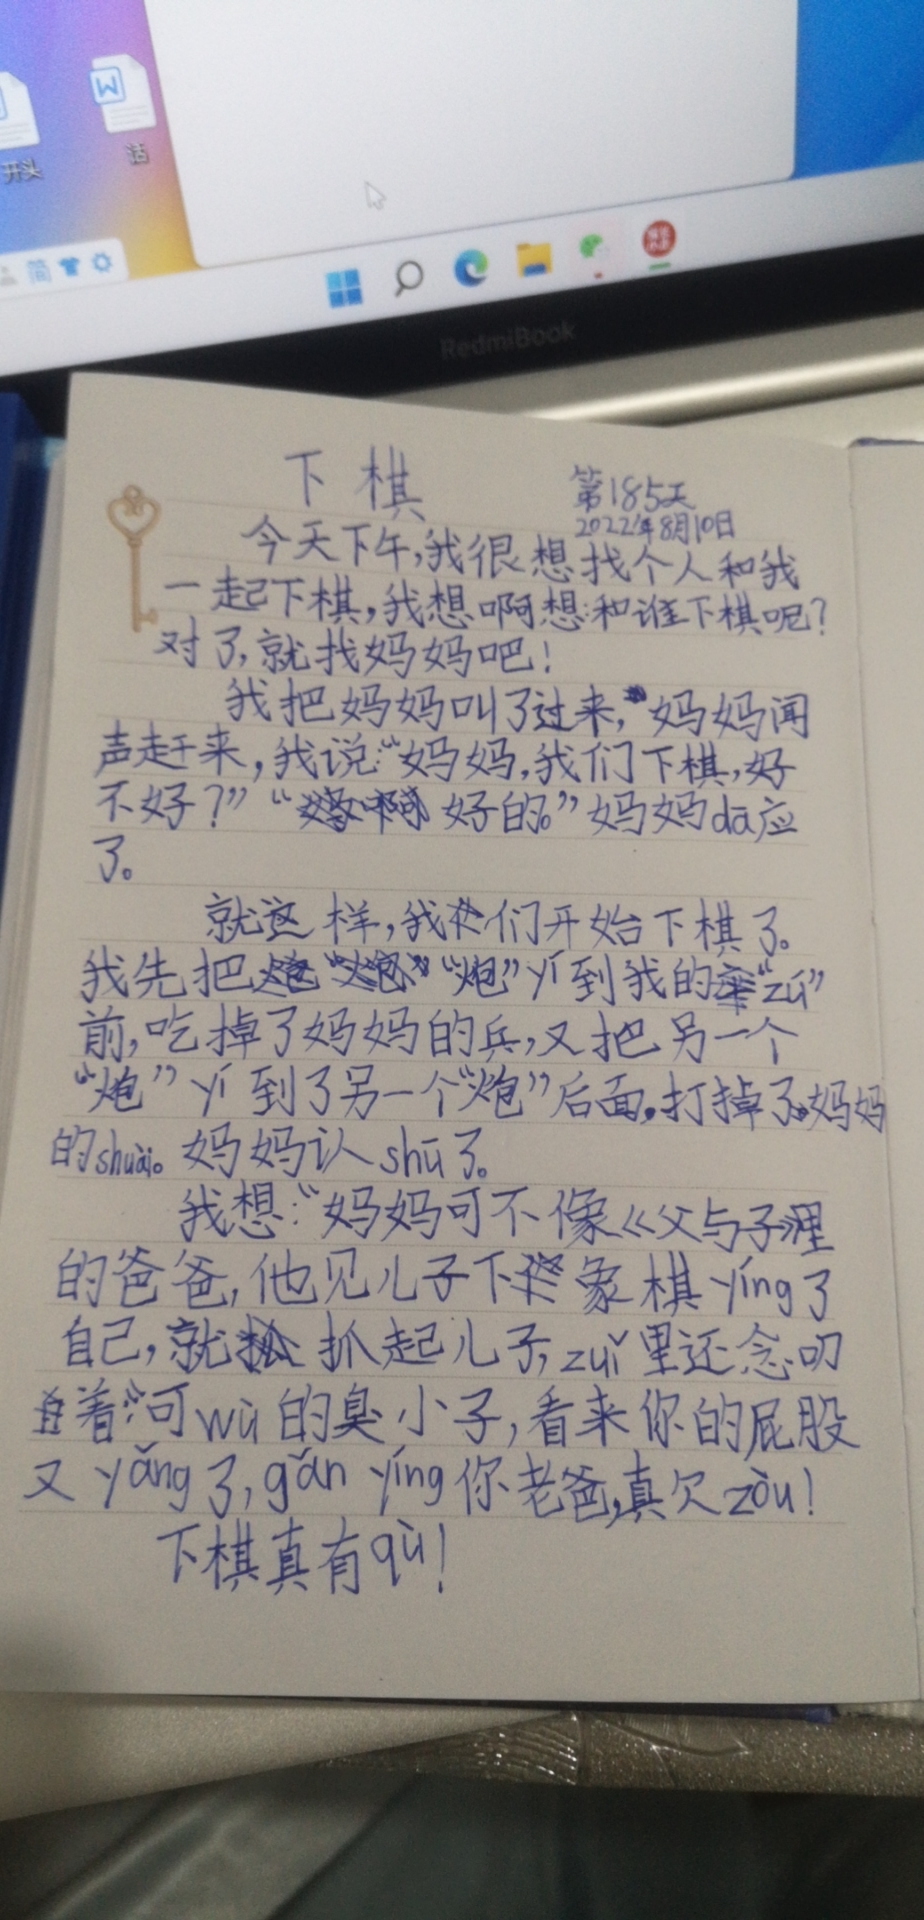 开头
活
简
RedmiBook
下棋
第185天
2022年8月10日
今天下午,我很想找个人和我
一起下棋,我想啊想:和谁下棋呢?
对了,就找妈妈吧!
我把妈妈叫了过来,妈妈闻
声赶来,我说:“妈妈,我们下棋,好
不好?”“好的。”妈妈dā应
了。
就这样,我们开始下棋了。
我先把“炮”yí到我的“zú”
前,吃掉了妈妈的兵,又把另一个
“炮”yí到了另一个“炮”后面,打掉了妈妈
的shuài。妈妈认shū了。
我想:“妈妈可不像《父与子》里
的爸爸,他见儿子下象棋yíng了
自己,就抓起儿子,zuǐ里还念叨
着:“可wù的臭小子,看来你的屁股
又yǎng了,gǎn yíng你老爸,真欠zòu!
下棋真有qù!